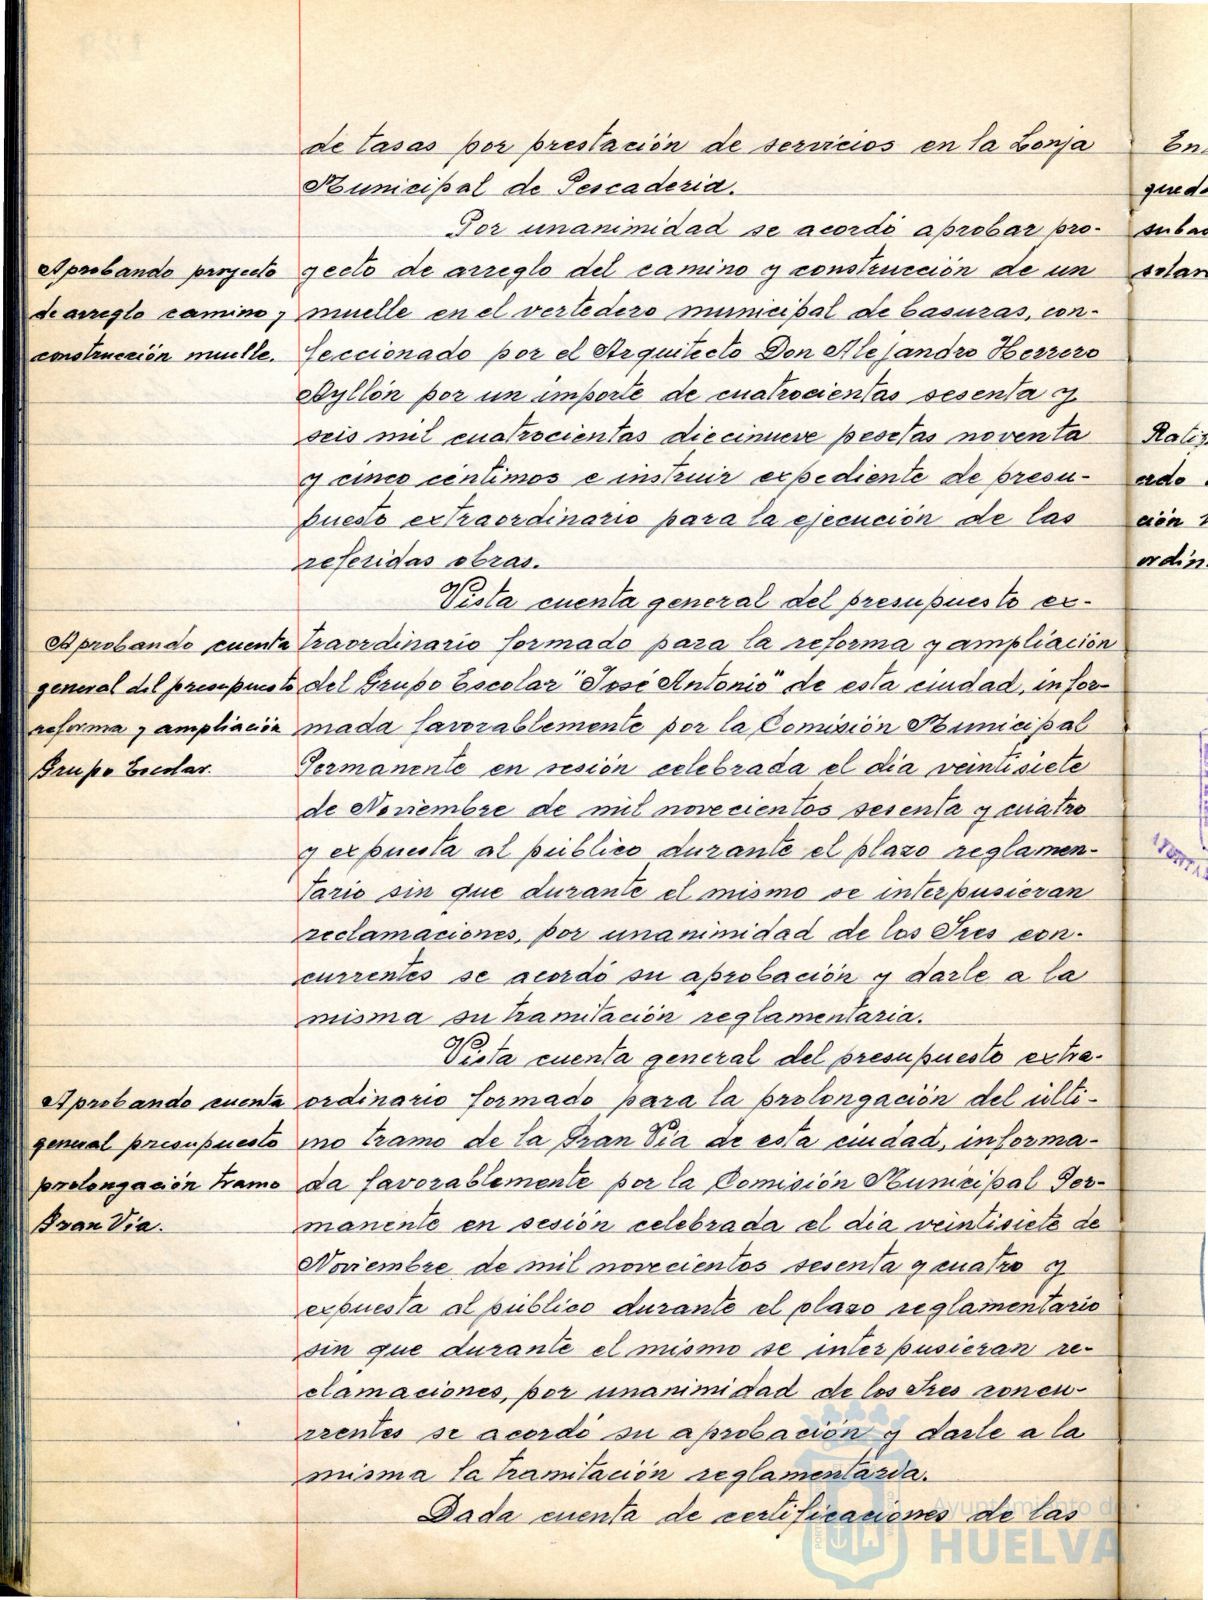 de tasas por prestación de servicios en la Lonja
Municipal de Pescaderia.
Por unanimidad se acordó aprobar pro-
yecto de arreglo del camino y construcción de un
muelle en el vertedero municipal de basuras, con-
feccionado por el Arquitecto Don Alejandro Herrero
Ayllón por un importe de cuatrocientas sesenta y
seis mil cuatrocientas diecinueve pesetas noventa
y cinco céntimos e instruir expediente de presu-
puesto extraordinario para la ejecución de las
referidas obras.
Vista cuenta general del presupuesto ex-
traordinario formado para la reforma y ampliación
del Grupo Escolar "José Antonio" de esta ciudad, infor-
mada favorablemente por la Comisión Municipal
Permanente en sesión celebrada el dia veintisiete
de Noviembre de mil novecientos sesenta y cuatro
y expuesta al público durante el plazo reglamen-
tario sin que durante el mismo se interpusieran
reclamaciones, por unanimidad de los Sres con-
currentes se acordó su aprobación y darle a la
misma su tramitación reglamentaria.
Vista cuenta general del presupuesto extra-
ordinario formado para la prolongación del últi-
mo tramo de la Gran Via de esta ciudad, informa-
da favorablemente por la Comisión Municipal Per-
manente en sesión celebrada el dia veintisiete de
Noviembre de mil novecientos sesenta y cuatro y
expuesta al público durante el plazo reglamentario
sin que durante el mismo se interpusieran re-
clamaciones, por unanimidad de los Sres concu-
rrentes se acordó su aprobación y darle a la
misma la tramitación reglamentaria.
Dada cuenta de certificaciones de las
Aprobando proyecto
de arreglo camino y
construcción muelle.
Aprobando cuenta
general del presupuesto
reforma y ampliación
Grupo Escolar.
Aprobando cuenta
general presupuesto
prolongación tramo
Gran Via.
Ayuntamiento de
HUELVA